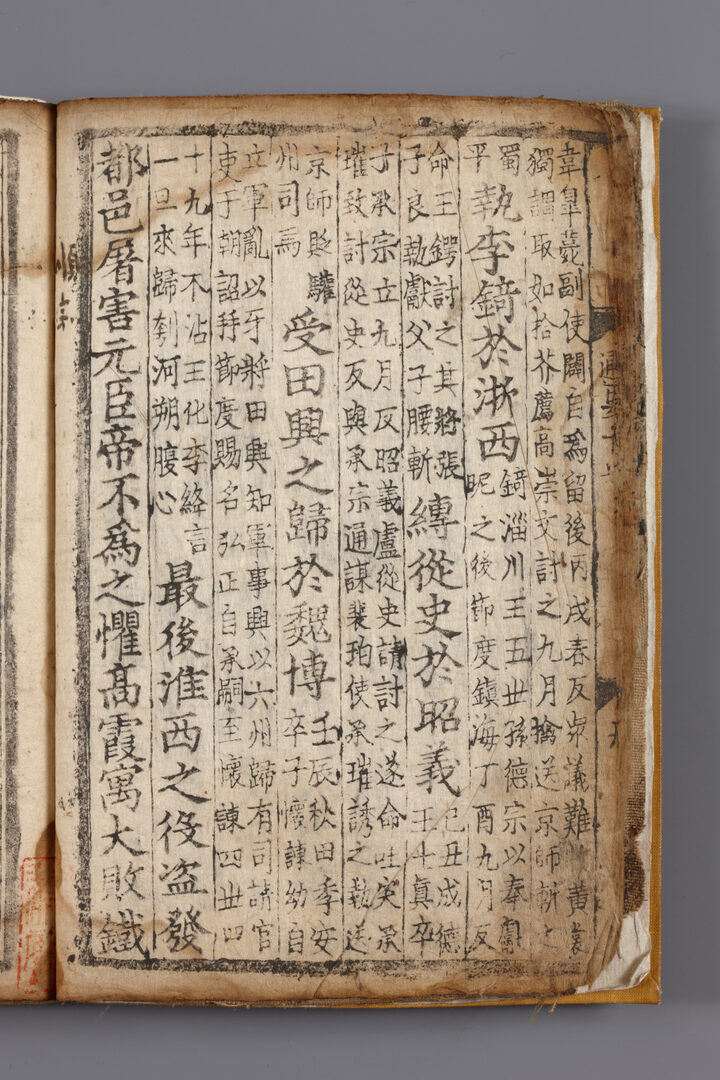 韋皐薨副使闢自爲留後丙戌春反衆議難黃裳
獨謂取如拾芥薦高崇文討之九月擒送京師斬之
蜀
平
執李錡於浙西
錡淄川王五世孫德宗以奉獻
昵之後節度鎮海丁酉九月反
命王鍔討之其將張
子良執獻父子腰斬
縳從史於昭義
己丑成德
王士眞卒
子承宗立九月反昭義盧從史請討之遂命吐突承
璀致討從史反與承宗通謀裴珀使承璀誘之執送
京師貶驩
州司馬
受田興之歸於魏博
壬辰秋田季安
卒子懷諫幼自
立軍亂以牙將田興知軍事興以六州歸有司請官
吏于朝詔拜節度賜名弘正自承嗣至懷諫四世四
十九年不沾王化李絳言
一旦來歸刳河朔腹心
最後淮西之役盜發
都邑屠害元臣帝不爲之懼高霞寓大敗鐵